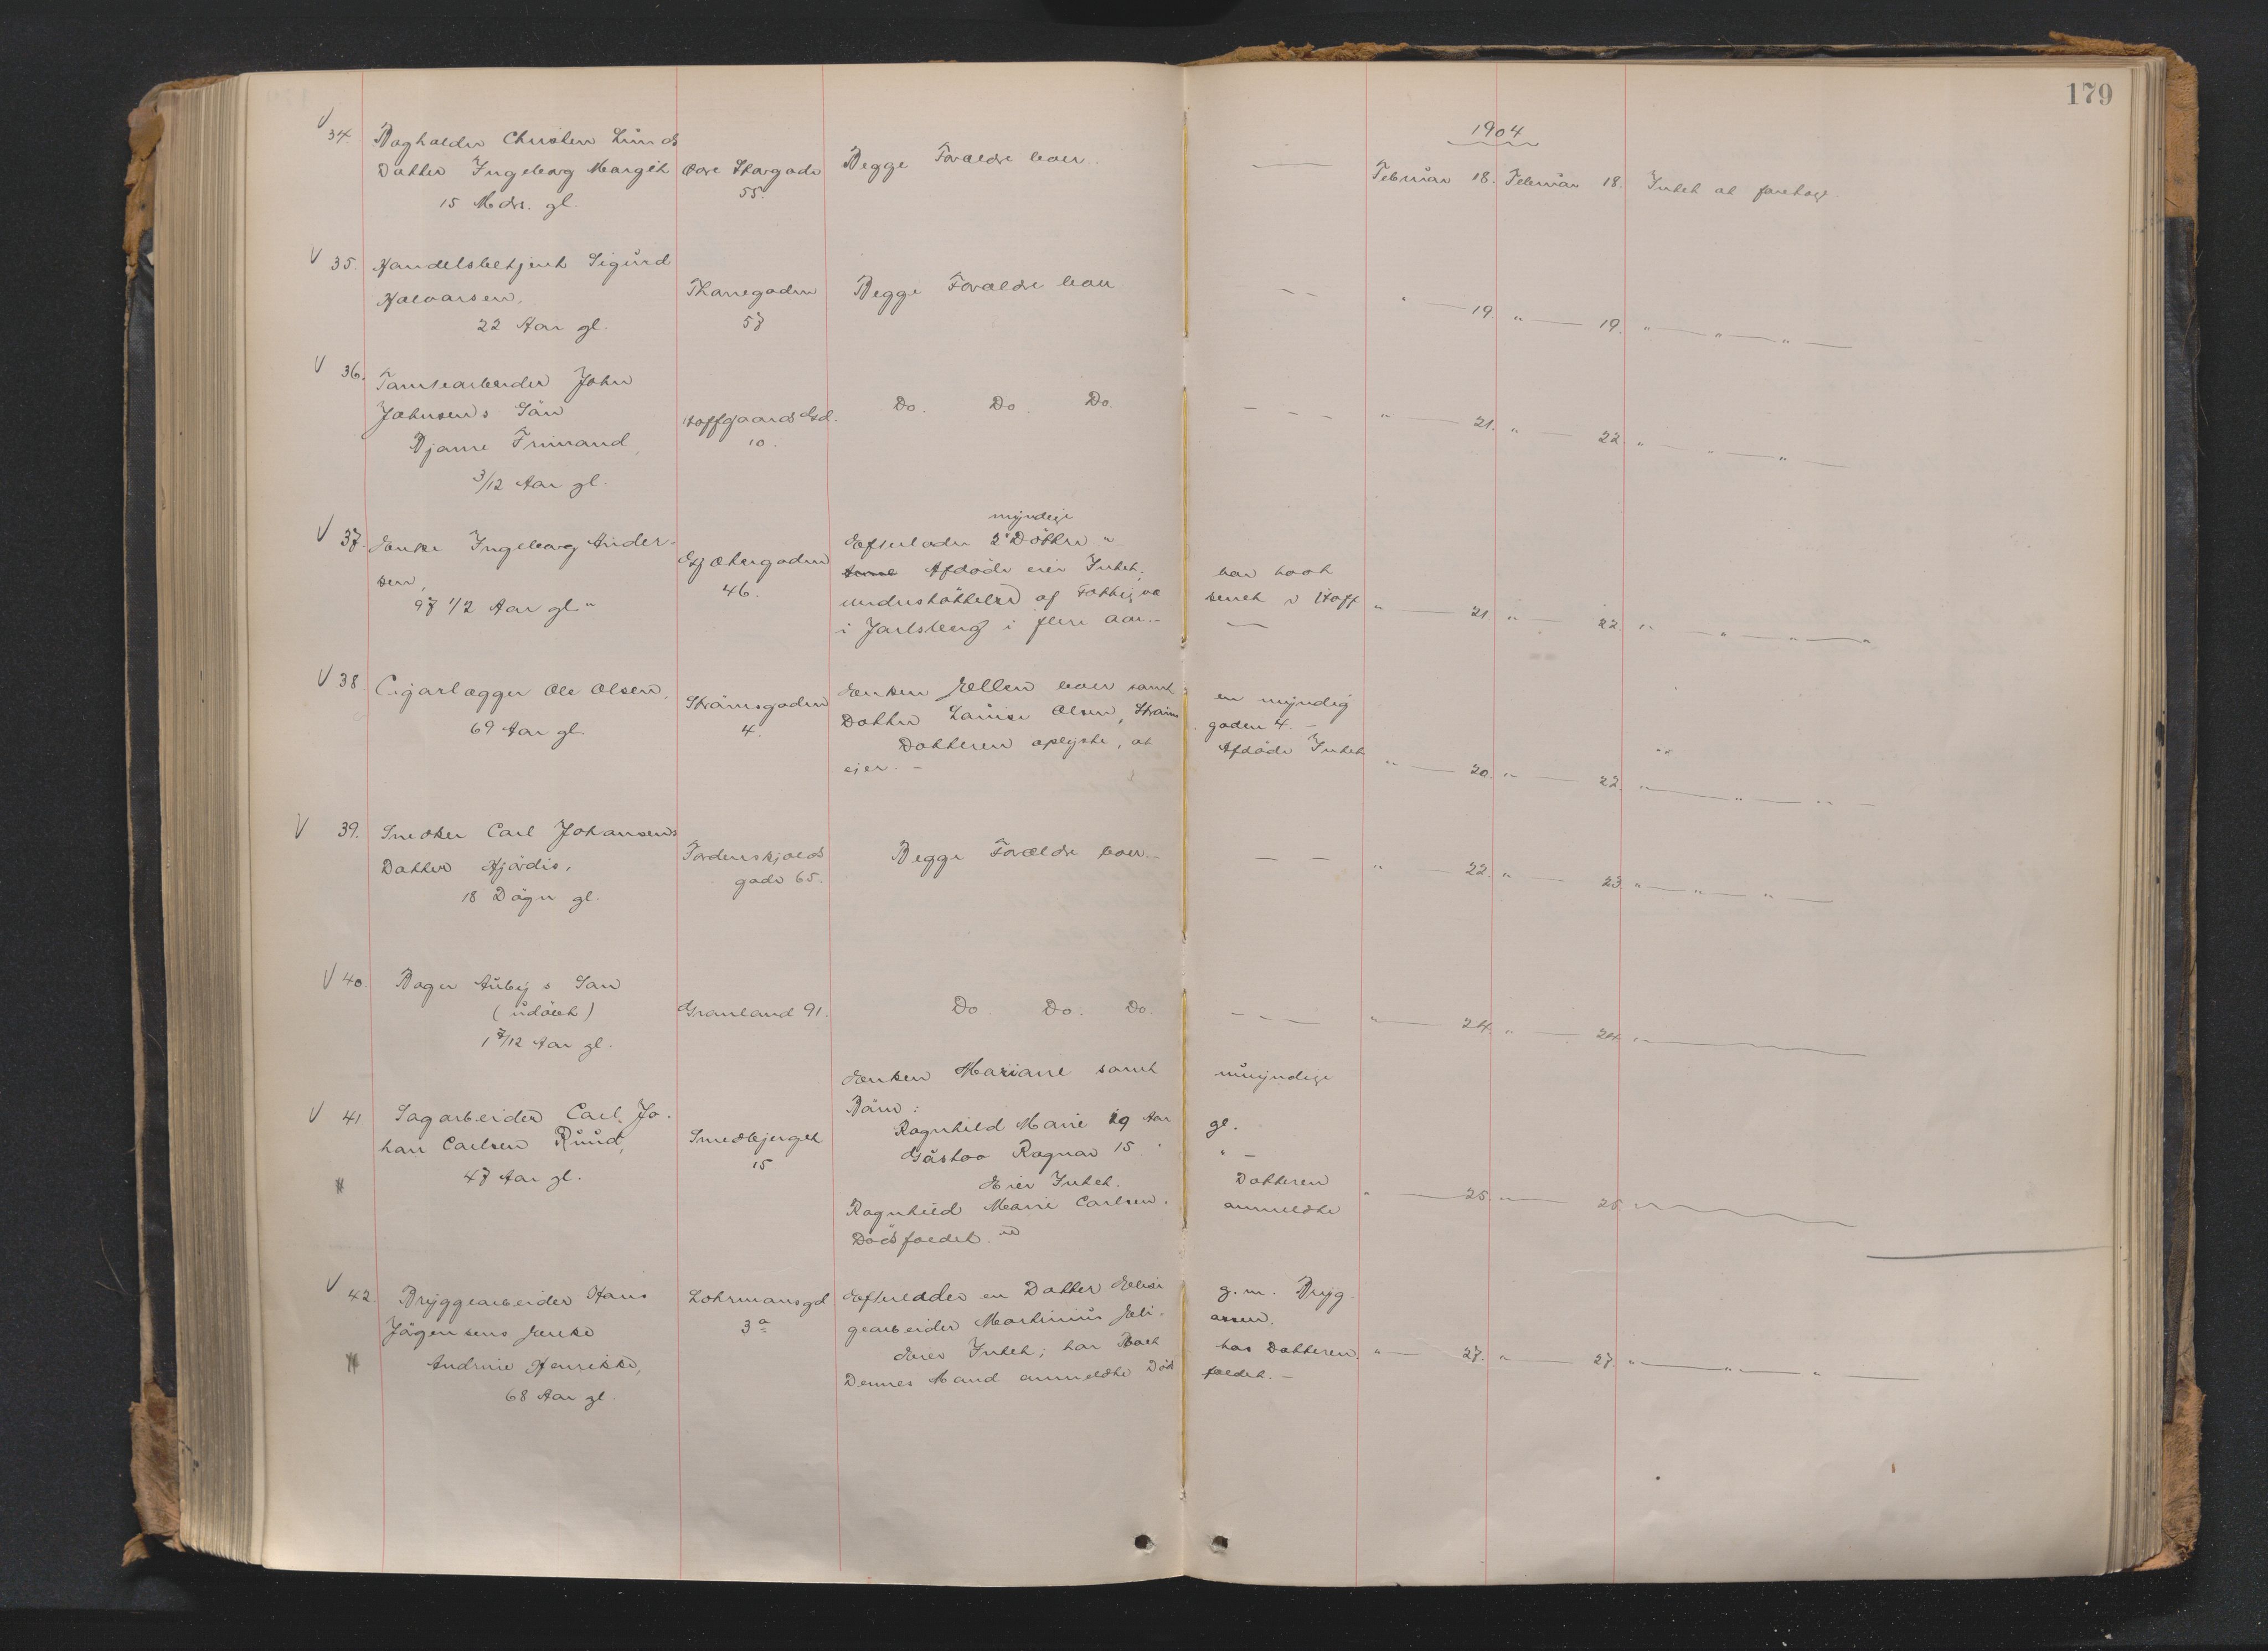 179
1904
34. Bogholder Christen Lunds
Datter Ingeborg Margith
15 Mdrs. gl.
Øvre Storgade
55.
Begge Forældre lever.
Februar 18. Februar 18. Intet at foretage.
35. Handelsbetjent Sigurd
Halvorsen,
22 Aar gl.
Thornegaden
57
Begge Forældre lever
" 19 " 19. " " "
36. Tomtearbeider John
Johnsens Sön
Bjarne Trimand,
3/12 Aar gl.
Hoffgaards Gd.
10.
Do. Do. Do.
" 21. " 22. " " "
37. Enke Ingeborg Ander-
sen,
97 1/2 Aar gl.
Gjetergaden
46.
myndige
Efterlader 2 Döttre
Afdöde eier Intet;
understöttelse af Fattigv.
i Jarlsberg i flere Aar.
har havt
" 21. " 22. " " "
38. Cigarlægger Ole Olsen,
69 Aar gl.
Strömsgaden
4.
Enken Ellen lever samt
Datter Lauise Olsen, Ströms
Datteren oplyste, at
ejer.
en myndig
gaden 4.
Afdöde Intet
" 20. " 22. " " "
39. Snedker Carl Johansens
Datter Hjördis,
18 Dögn gl.
Tordenskjolds
gade 65.
Begge Forældre lever.
" 22. " 23. " " "
40. Bager Aubys Sön
(udöbt)
1 7/12 Aar gl.
Grønland 91.
Do. Do. Do.
" 24. " 24. "
41 Sagarbeider Carl Jo-
han Carlsen Ruud,
47 Aar gl.
Smedbjerget
15
Enken Mariane samt
Börn:
Ragnhild Marie 19 Aar
Gustav Ragnar 15 "
Eier Intet.
Ragnhild Marie Carlsen.
Dödsfaldet.
umyndige
gl.
"
Datteren
anmeldte
" 25. " 25. "
42. Bryggearbeider Hans
Jörgensens Enke
Andrine Henrikke,
68 Aar gl.
Lohrmansgd
3a
Efterladder en Datter Elise
gearbeider Martinius Eli-
Eier Intet; har Boet
Dennes Mand anmeldte Döds
g. m. Bryg
assen.
hos Datteren.
faldet.
" 27. " 27. " " "